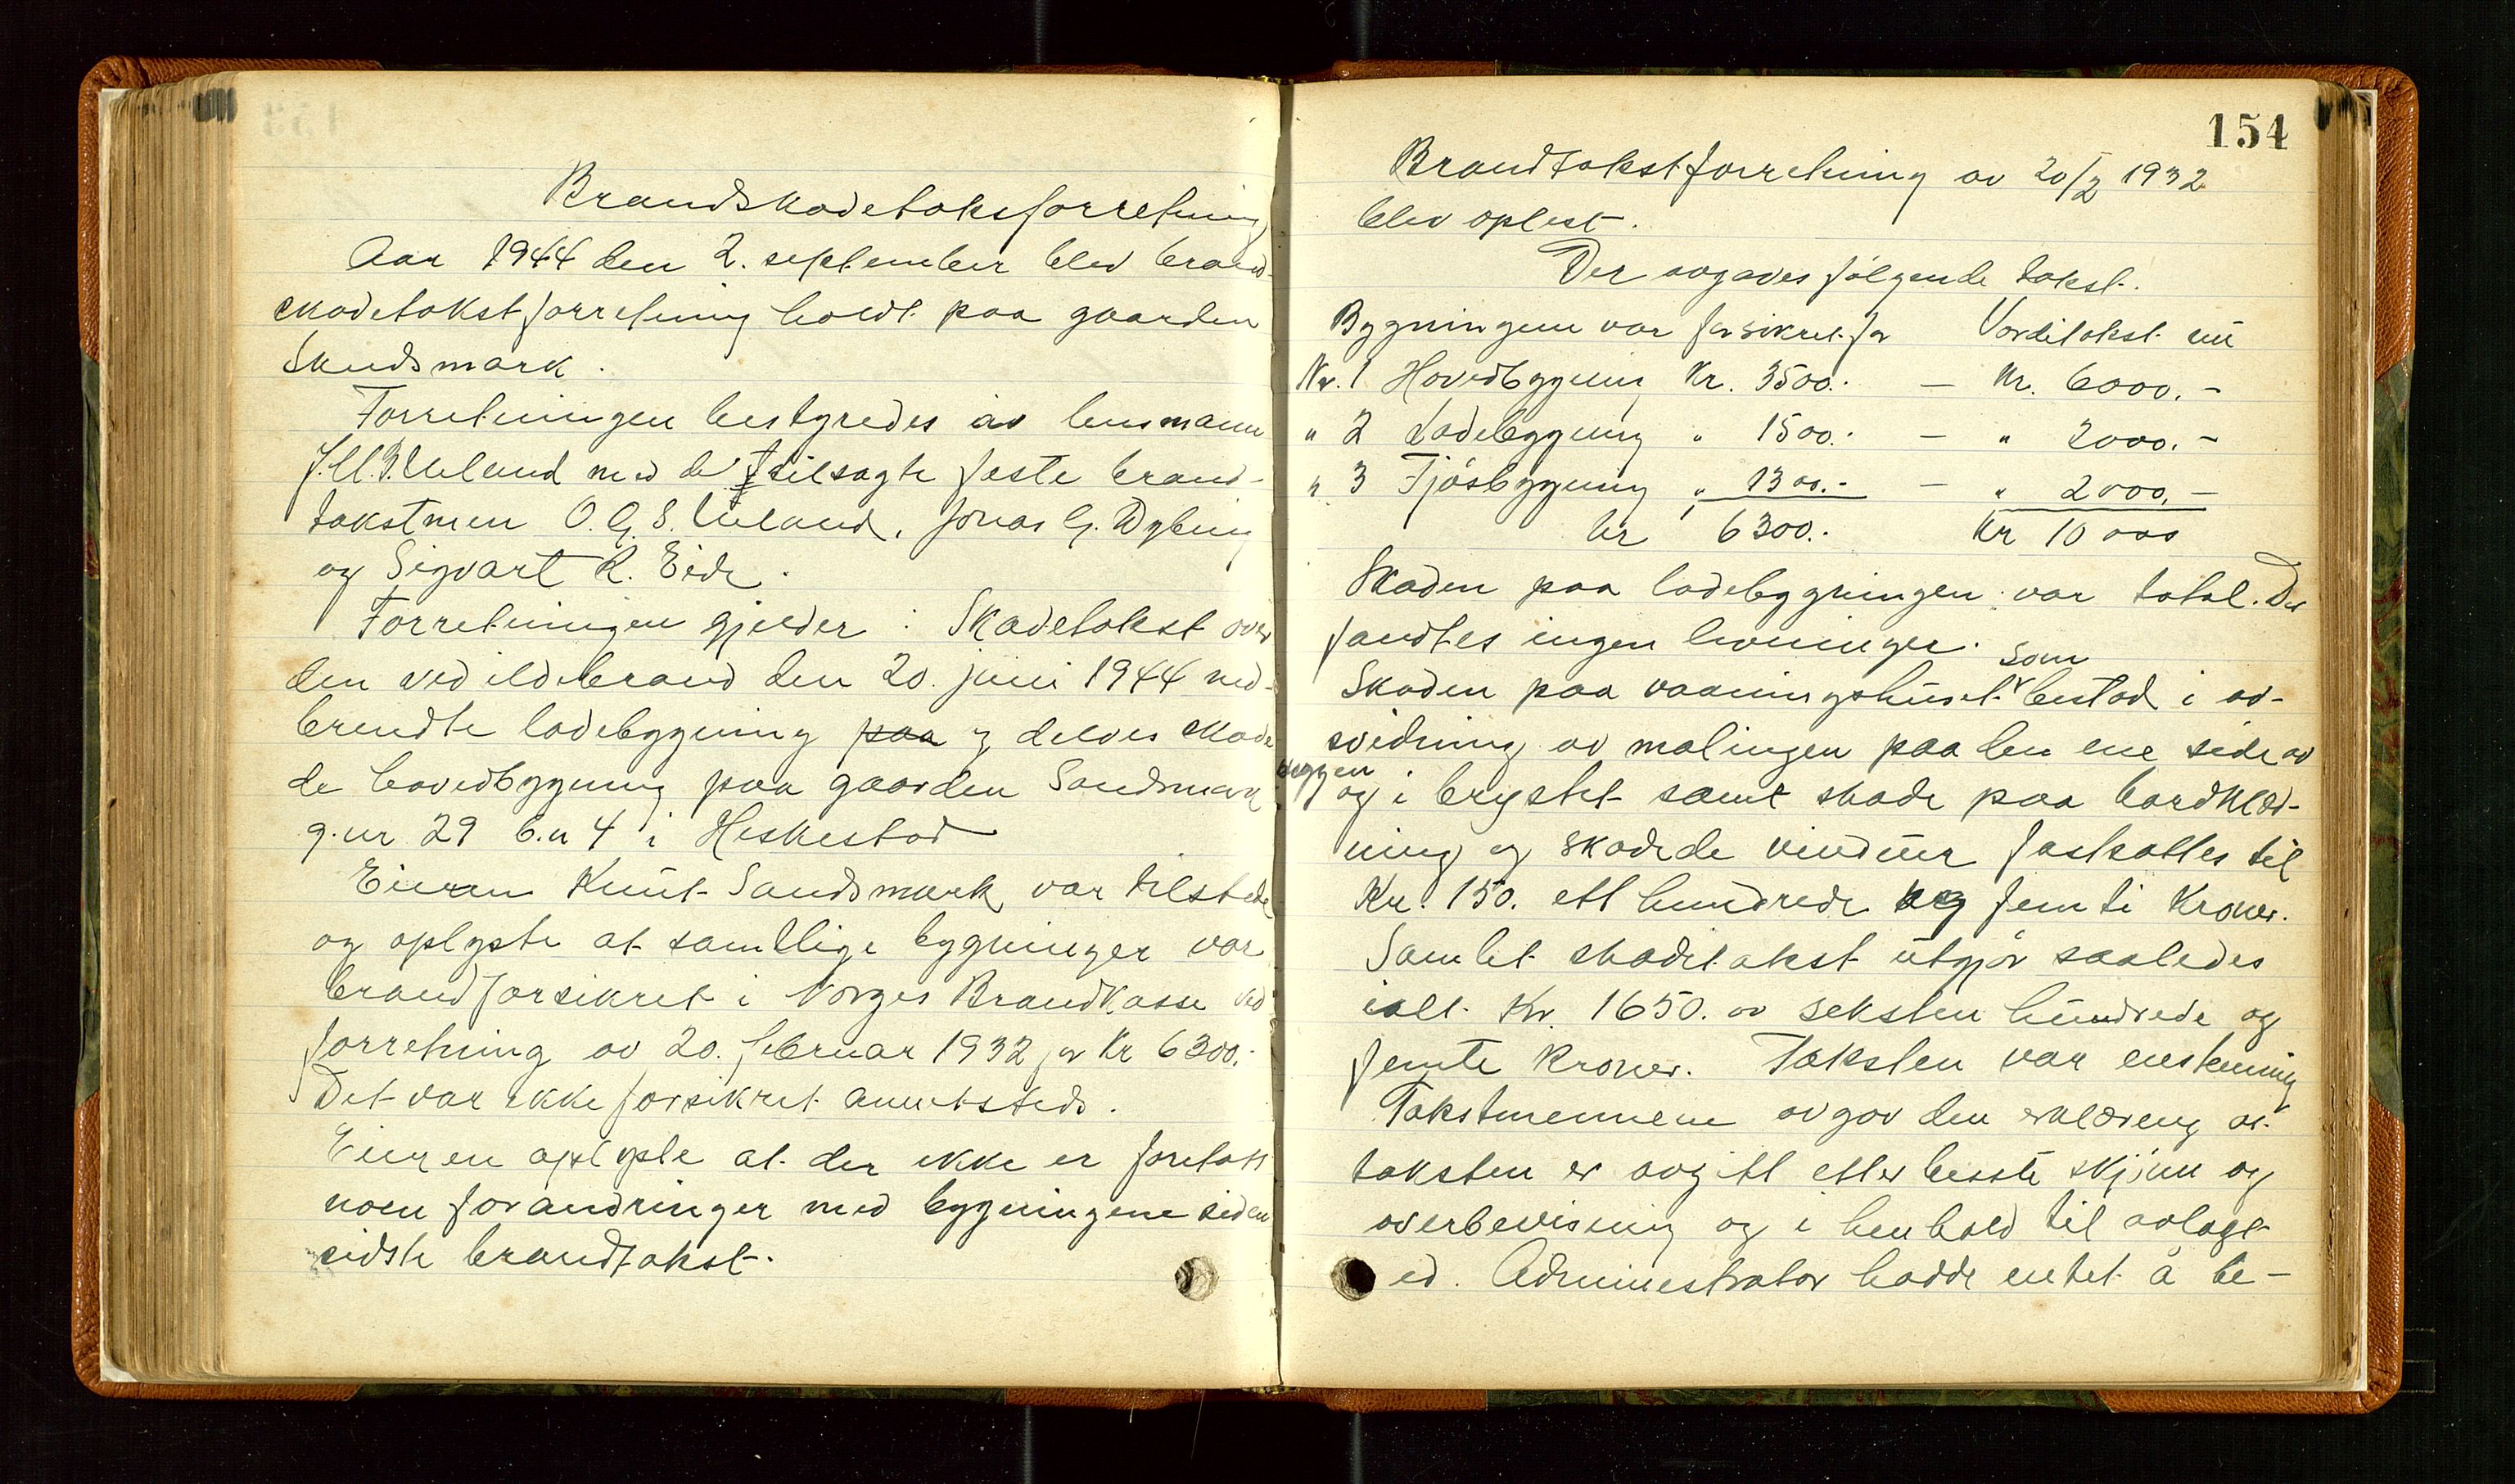 Brandskadetaksforretning
Aar 1944 den 2. september blev brand-
skadetakstforretning holdt paa gaarden
Sandsmark.
Forretningen bestyredes av lensmann
J.M.B. Ueland med de tilsagte faste brand-
takstmen O. G. S. Ueland, Jonas G. Dybing
og Sigvart R. Eide.
Forretningen gjelder: Skadetakst over
den ved ildebrand den 20. juni 1944 ned-
brendte ladebygning paa og delvis skade
de hovedbygning paa gaarden Sandsmark
g.nr 29 b.n 4 i Heskestad
Eieren Knut Sandsmark var tilstede
og oplyste at samtlige bygninger var
brandforsikret i Norges Brandkasse ved
forretning av 20. februar 1932 for Kr 6300.-
Det var ikke forsikret annetsteds.
Eieren oplyste at der ikke er foretatt
noen forandringer med bygningene siden
sidste brandtakst.
154
Brandtakstforretning av 20/2 1932
blev oplest.
Der avgaves følgende takst.
Bygningene var forsikret for Verditakst nu
Nr. 1 Hovedbygning Kr. 3500.- — Kr. 6000.-
" 2 Ladebygning " 1500.- — " 2000.-
" 3 Fjøsbygning " 1300.- — " 2000.-
kr 6300.- Kr 10 000
Skaden paa ladebygningen var total. Der
fandtes ingen levninger.
som
Skaden paa vaaningshuset bestod i av-
svidning av malingen paa den ene side av
veggen
og i brystet samt skade paa bordklæd-
ning og skadede vinduer fastsattes til
Kr. 150. ett hundrede og femti Kroner.
Samlet skadetakst utgjør saaledes
ialt Kr. 1650. av seksten hundrede og
femti Kroner. Taksten var enstemmig
Takstmennene avgav den erklæring at
taksten er avgitt etter beste skjønn og
overbevisning og i henhold til avlagt
ed. Administrator hadde intet å be-